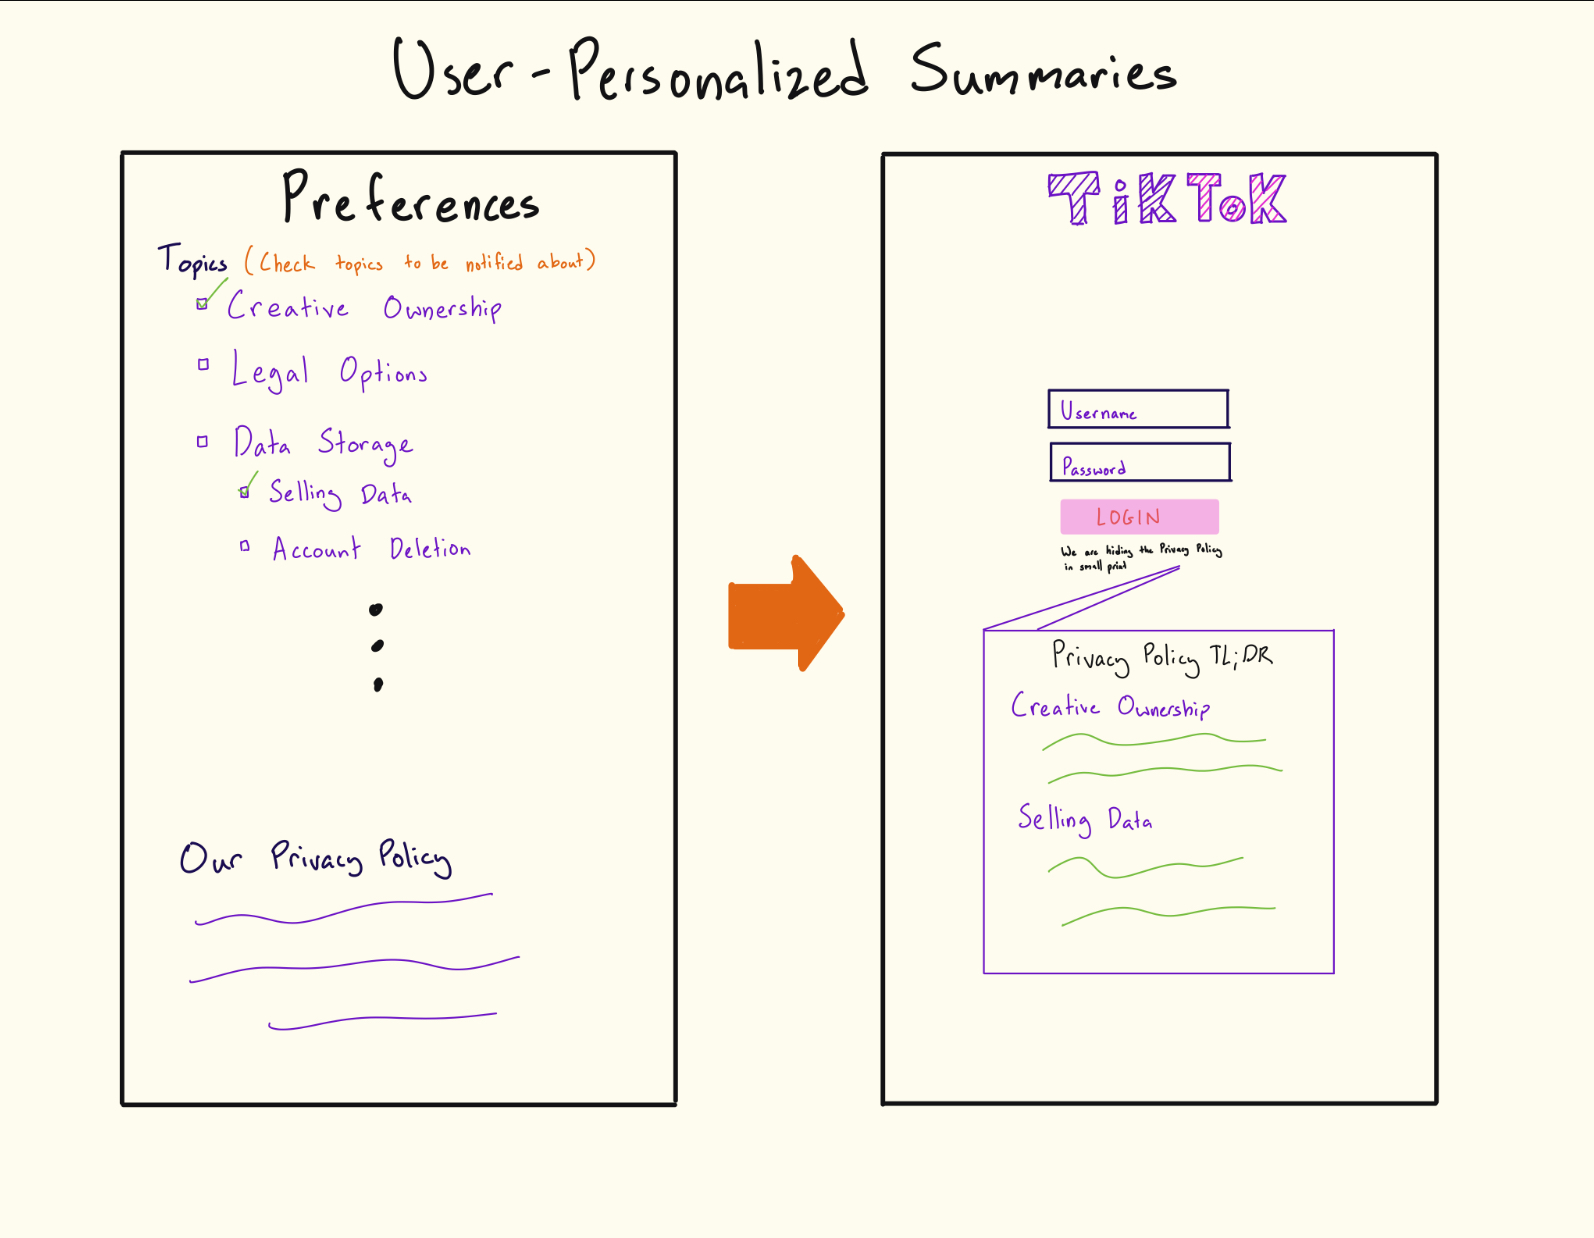 User-Personalized Summaries
Preferences
Topics (Check topics to be notified about)
Creative Ownership
Legal Options
Data Storage
Selling Data
Account Deletion
Our Privacy Policy
TiKToK
Username
Password
LOGIN
We are hiding the Privacy Policy
in small print
Privacy Policy TL;DR
Creative Ownership
Selling Data